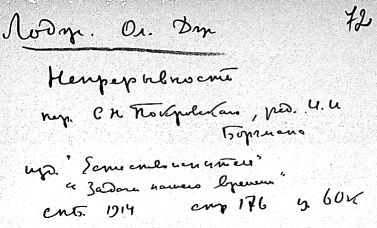 72
Лодж. Ол. Дж
Непрерывность
пер. С Н Покровская, ред. И. И
Боргмана
изд. "Естествоиспытатель"
"Задачи нашего времени"
спб. 1914 стр 176 ц 60к